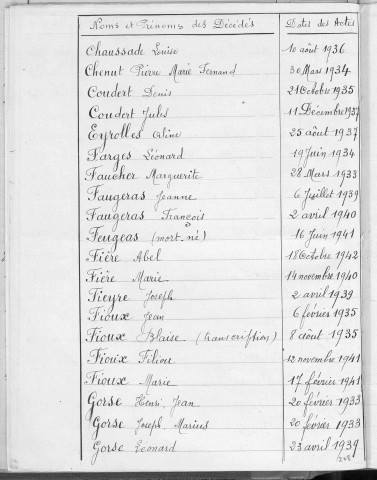 Noms et Prénoms des Décédés Dates des Actes
Chaussade Louise 10 août 1936
Chenut Pierre Marie Fernand 30 Mars 1934
Coudert Denis 21 Octobre 1935
Coudert Jules 11 Décembre 1937
Eyrolles 25 août 1937
Farges Léonard 19 Juin 1934
Faucher Marguerite 28 Mars 1933
Faugeras Jeanne 6 Juillet 1939
Faugeras François 2 avril 1940
Feugeas (mort-né) 16 Juin 1941
Fière Abel 18 Octobre 1942
Fière Marie 14 novembre 1940
Fieyre Joseph 2 avril 1939
Fioux Jean 6 février 1935
Fioux Blaise (transcription) 8 août 1935
Fioux 12 novembre 1941
Fioux Marie 17 février 1941
Gorse Henri Jean 20 février 1933
Gorse Joseph Marius 20 février 1933
Gorse Léonard 23 avril 1939